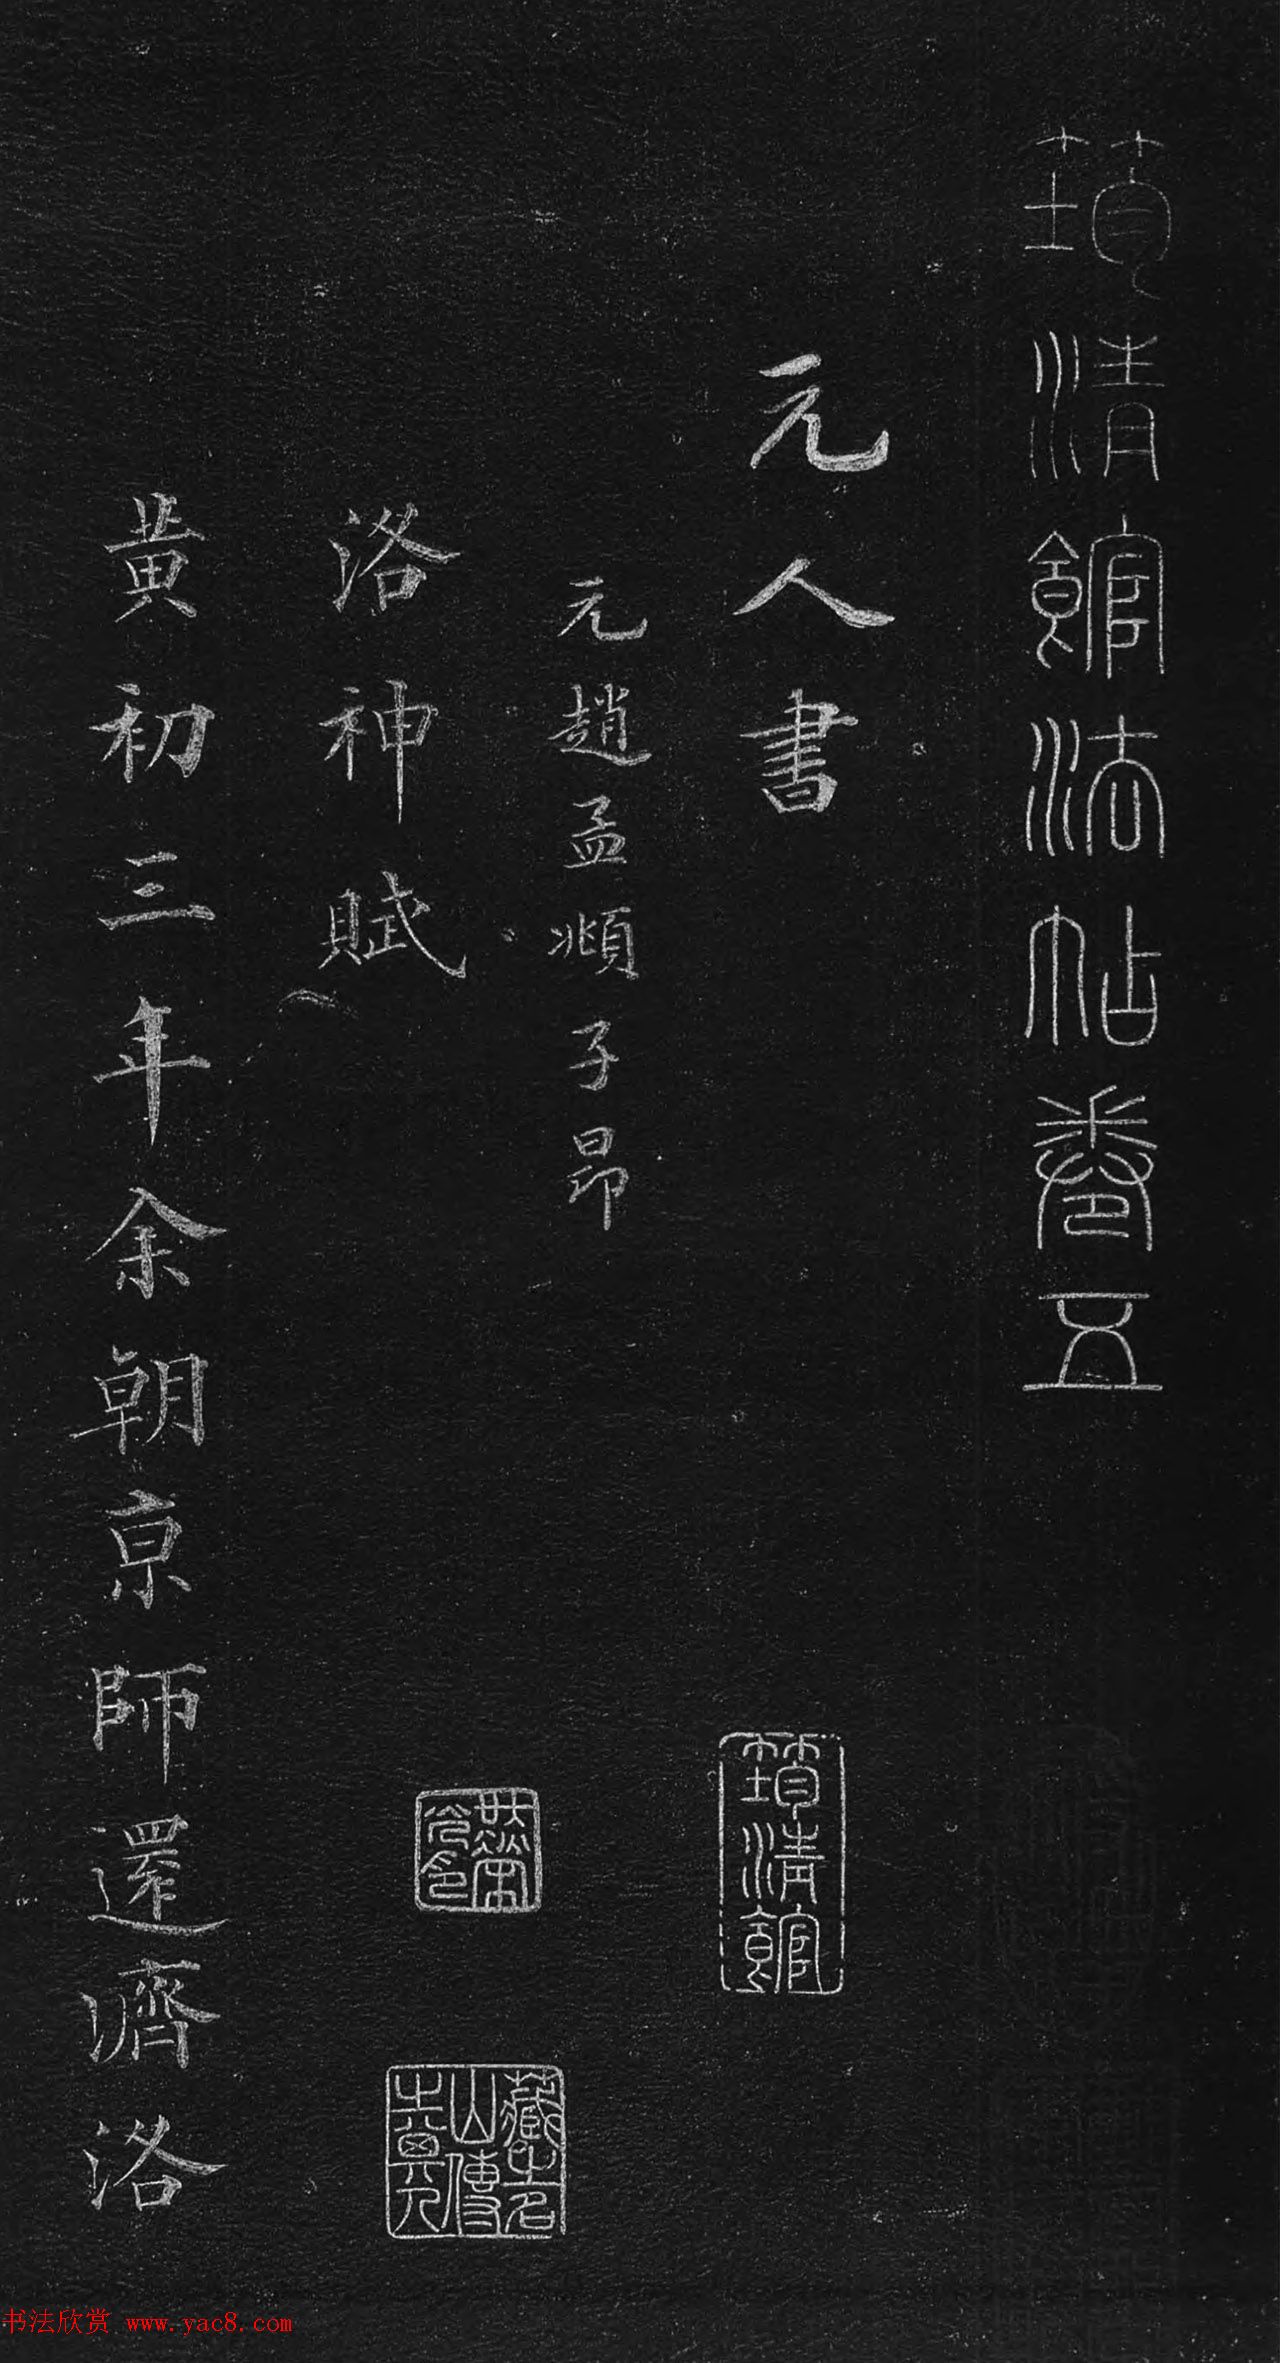 筠清館法帖卷五
元人書
元趙孟頫子昂
洛神賦
黄初三年余朝京師還濟洛
筠清館
藏之名山傳之其人
书法欣赏 www.yac8.com